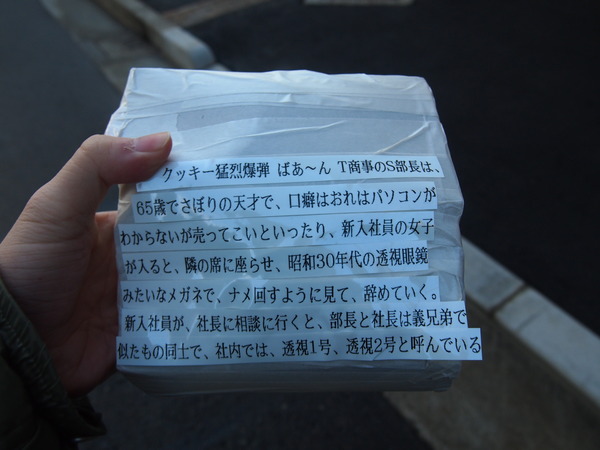 クッキー猛烈爆弾 ばあ～ん T商事のS部長は、
65歳でさぼりの天才で、口癖はおれはパソコンが
わからないが売ってこいといったり、新入社員の女子
が入ると、隣の席に座らせ、昭和30年代の透視眼鏡
みたいなメガネで、ナメ回すように見て、辞めていく。
新入社員が、社長に相談に行くと、部長と社長は義兄弟で
似たもの同士で、社内では、透視1号、透視2号と呼んでいる